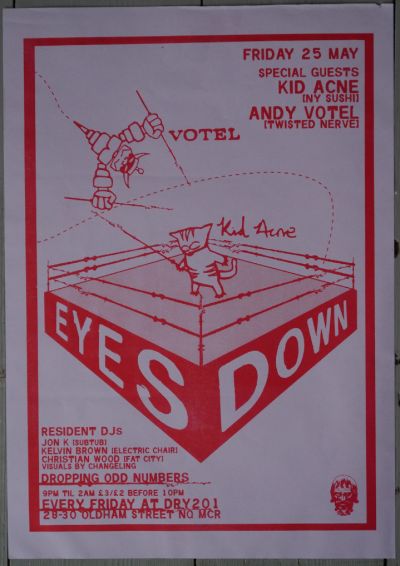 FRIDAY 25 MAY
SPECIAL GUESTS
KID ACNE
[NY SUSHI]
ANDY VOTEL
[TWISTED NERVE]
VOTEL
Kid Acne
EYES DOWN
RESIDENT DJs
JON K [SUBTUB]
KELVIN BROWN [ELECTRIC CHAIR]
CHRISTIAN WOOD [FAT CITY]
VISUALS BY CHANGELING
DROPPING ODD NUMBERS
9PM TIL 2AM £3/£2 BEFORE 10PM
EVERY FRIDAY AT DRY201
28-30 OLDHAM STREET NQ MCR